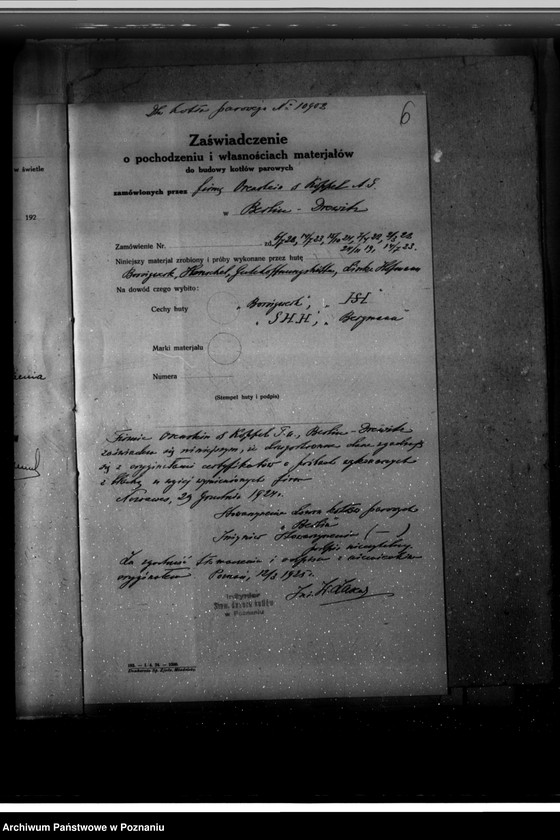 Dla kotła parowego № 10902
6
Zaświadczenie
o pochodzeniu i własnościach materjałów
do budowy kotłów parowych
zamówionych przez firmę Orenstein & Koppel A.G.
w Berlin - Drewitz
w świetle
192
Zamówienie Nr. zd.
Niniejszy materjał zrobiony i próby wykonane przez hutę
Borsigwerk, Henschel, Gutehoffnungshütte, Linke Hofmann
Na dowód czego wybito:
Cechy huty „Borsigwerk", „HSH"
„SHH", „Bergmann"
Marki materjału
Numera
(Stempel huty i podpis)
Firmie Orenstein & Koppel T.a., Berlin - Drewitz
zaświadcza się niniejszym, że
się z oryginałami certyfikatów o próbach wykonanych
z wyżej wymienionych firm
Nowawes, 29 Grudnia 1924 r.
Stowarzyszenie Dozoru kotłów parowych
„Berlin"
Inżynier Stowarzyszenia (—)
podpis nieczytelny
Za zgodność tłumaczenia i odpisu z niemieckim
oryginałem Poznań, 12/3 1925 r.
Inż.
Inżynier
Stow. Dozoru kotłów
w Poznaniu
Archiwum Państwowe w Poznaniu